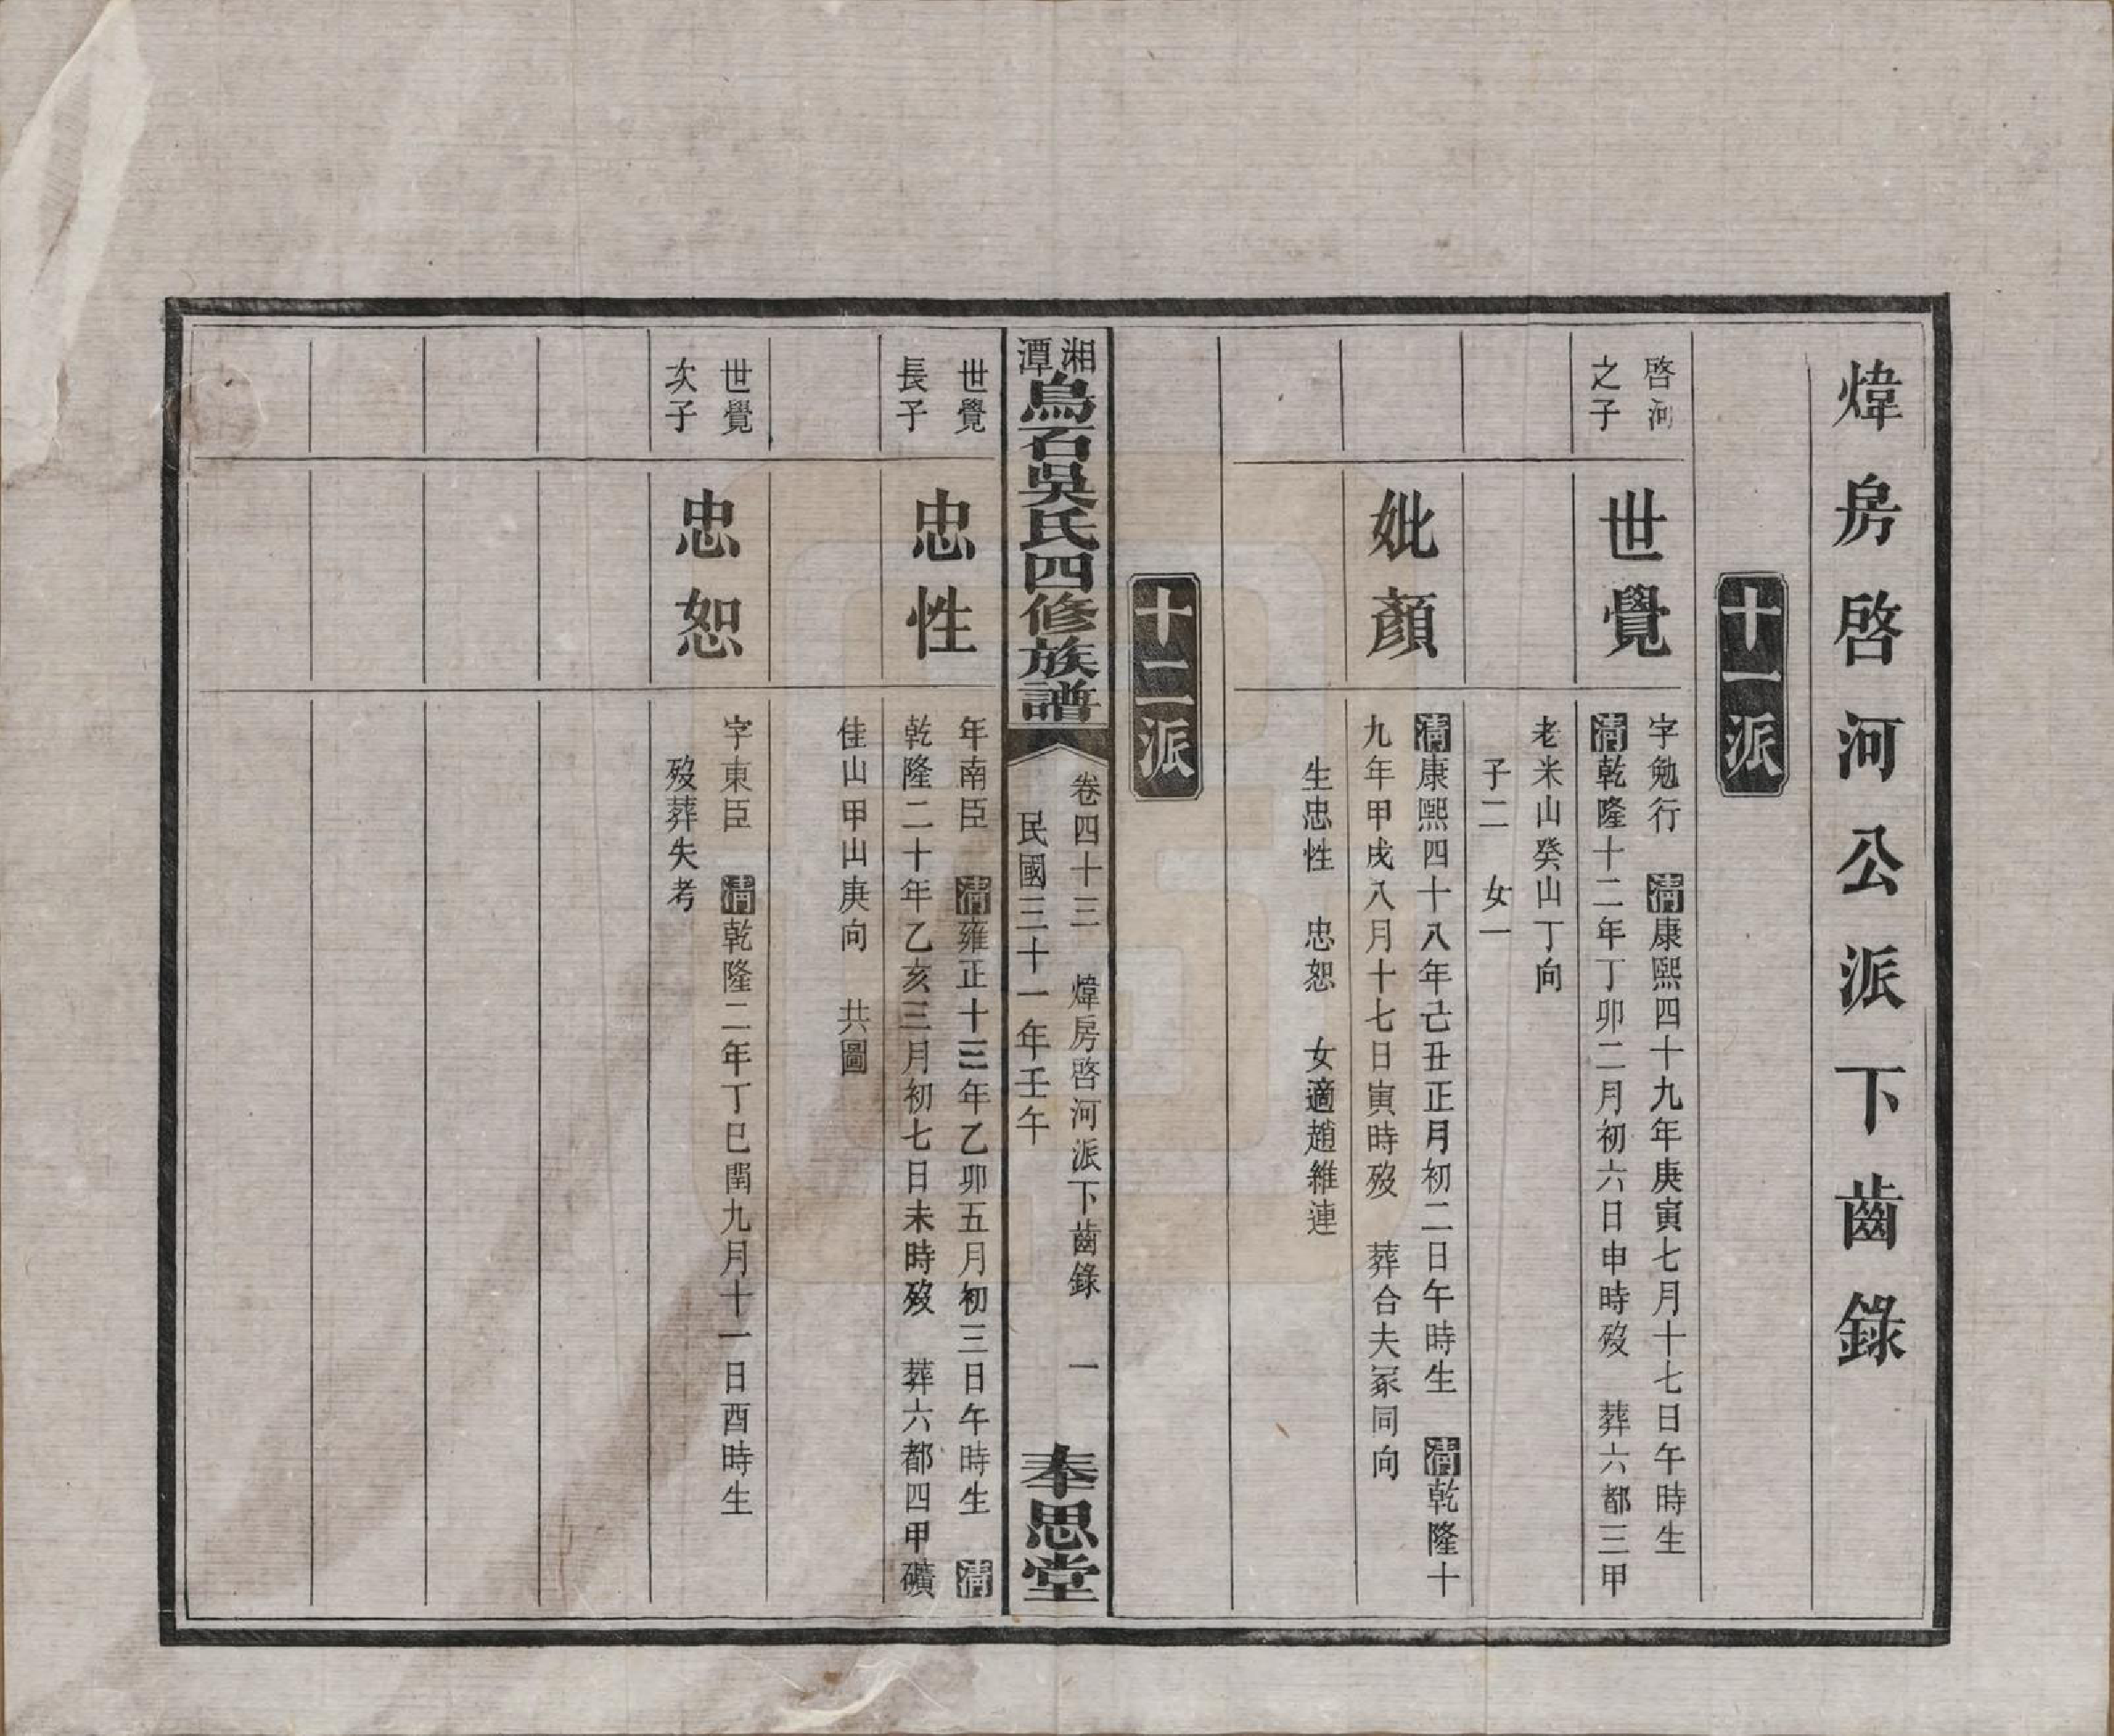 煒房啓河公派下齒錄
十一派
啓河
之子
世覺
字勉行　清康熙四十九年庚寅七月十七日午時生
清乾隆十二年丁卯二月初六日申時歿　葬六都三甲
老米山癸山丁向
子二　女一
妣顏
清康熙四十八年己丑正月初二日午時生　清乾隆十
九年甲戌八月十七日寅時歿　葬合夫冢同向
生忠性　忠恕　女適趙維連
十二派
湘潭烏石吳氏四修族譜
卷四十三　煒房啓河派下齒錄　一
民國三十一年壬午
奉思堂
世覺
長子
忠性
年南臣　清雍正十三年乙卯五月初三日午時生　清
乾隆二十年乙亥三月初七日未時歿　葬六都四甲礦
佳山甲山庚向　共圖
世覺
次子
忠恕
字東臣　清乾隆二年丁巳閏九月十一日酉時生
歿葬失考